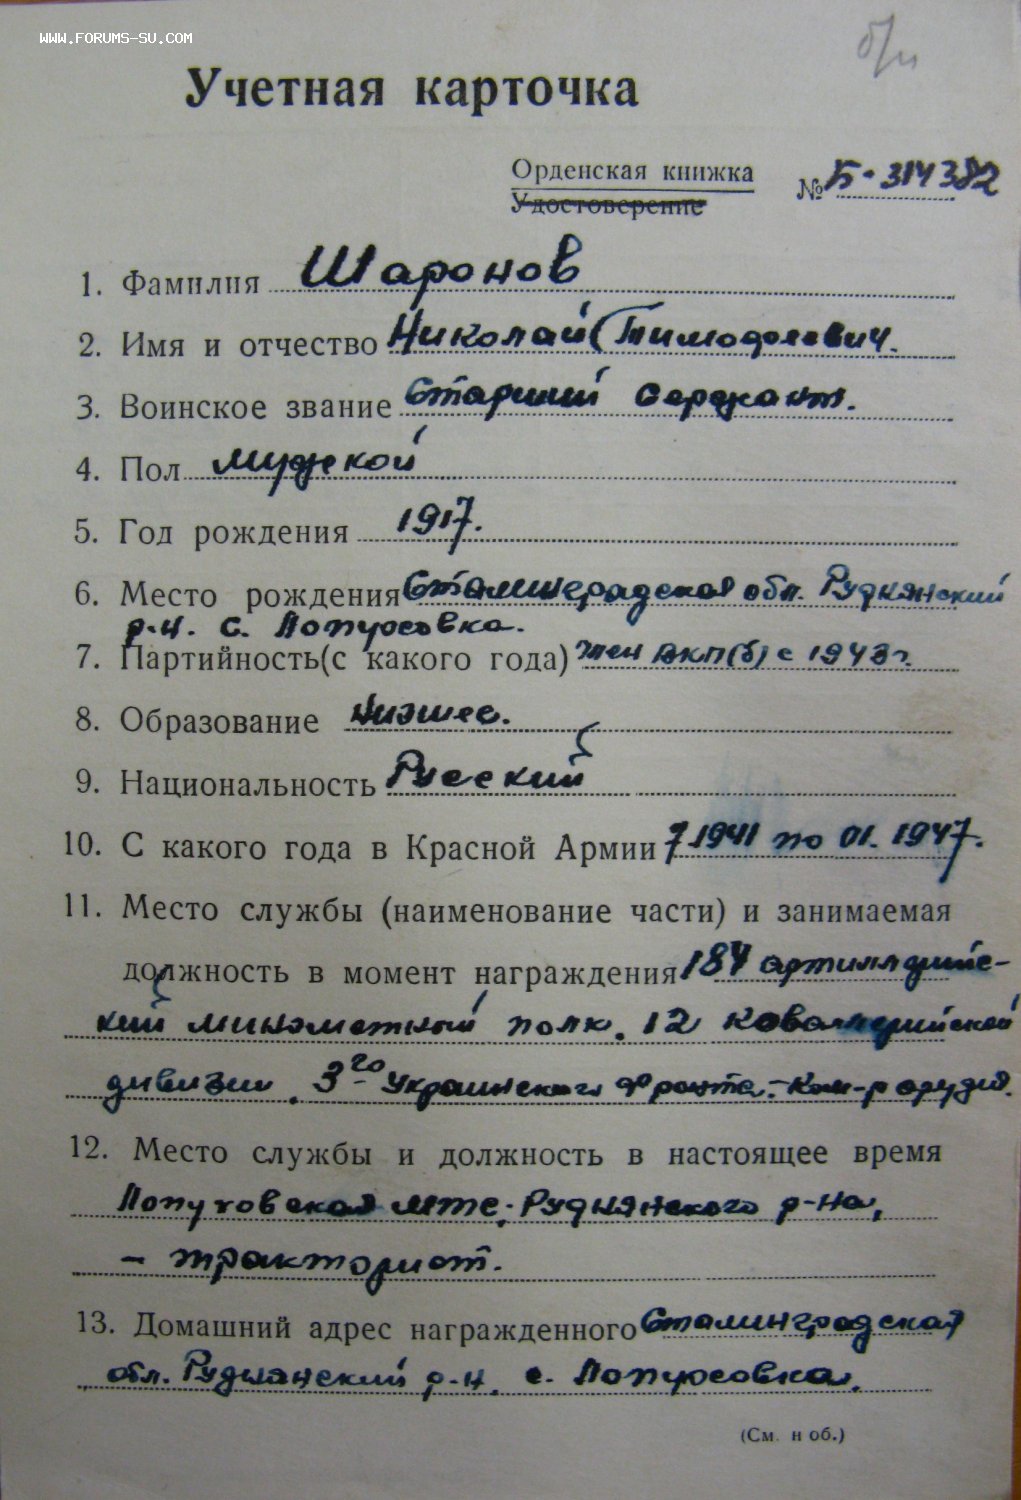 WWW.FORUMS-SU.COM
б/н
Учетная карточка
Орденская книжка
Удостоверение
№ Б-314382
1. Фамилия Шаронов
2. Имя и отчество Николай Тимофеевич.
3. Воинское звание Старший сержант.
4. Пол мужской
5. Год рождения 1917.
6. Место рождения Сталинградская обл. Руднянский
р-н. с. Лопуховка.
7. Партийность(с какого года) член ВКП(б) с 1943 г.
8. Образование Низшее.
9. Национальность Русский
10. С какого года в Красной Армии 7.1941 по 01.1947.
11. Место службы (наименование части) и занимаемая
должность в момент награждения 184 артиллерийс-
кий минометный полк. 12 кавалерийской
дивизии. 3-го Украинского фронта.-Ком-р орудия.
12. Место службы и должность в настоящее время
Лопуховская мтс; Руднянского р-на,
- тракторист.
13. Домашний адрес награжденного Сталинградская
обл. Руднянский р-н. с. Лопуховка.
(См. н об.)